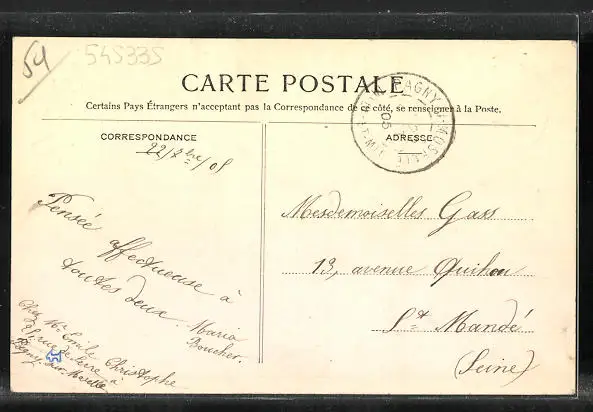 54
54S33S
CARTE POSTALE
Certains Pays Étrangers n'acceptant pas la Correspondance de ce côté, se renseigner à la Poste.
CORRESPONDANCE
ADRESSE
PAGNY-S-MOSELLE
05
22/7bre/05
Pensée
affectueuse à
toutes deux.
Maria
Boucher.
Chez Mr Emile Christophe
rue de Serre à
Pagny-sur-Moselle
Mesdemoiselles Gass
13, avenue Quihou
St Mandé
(Seine)